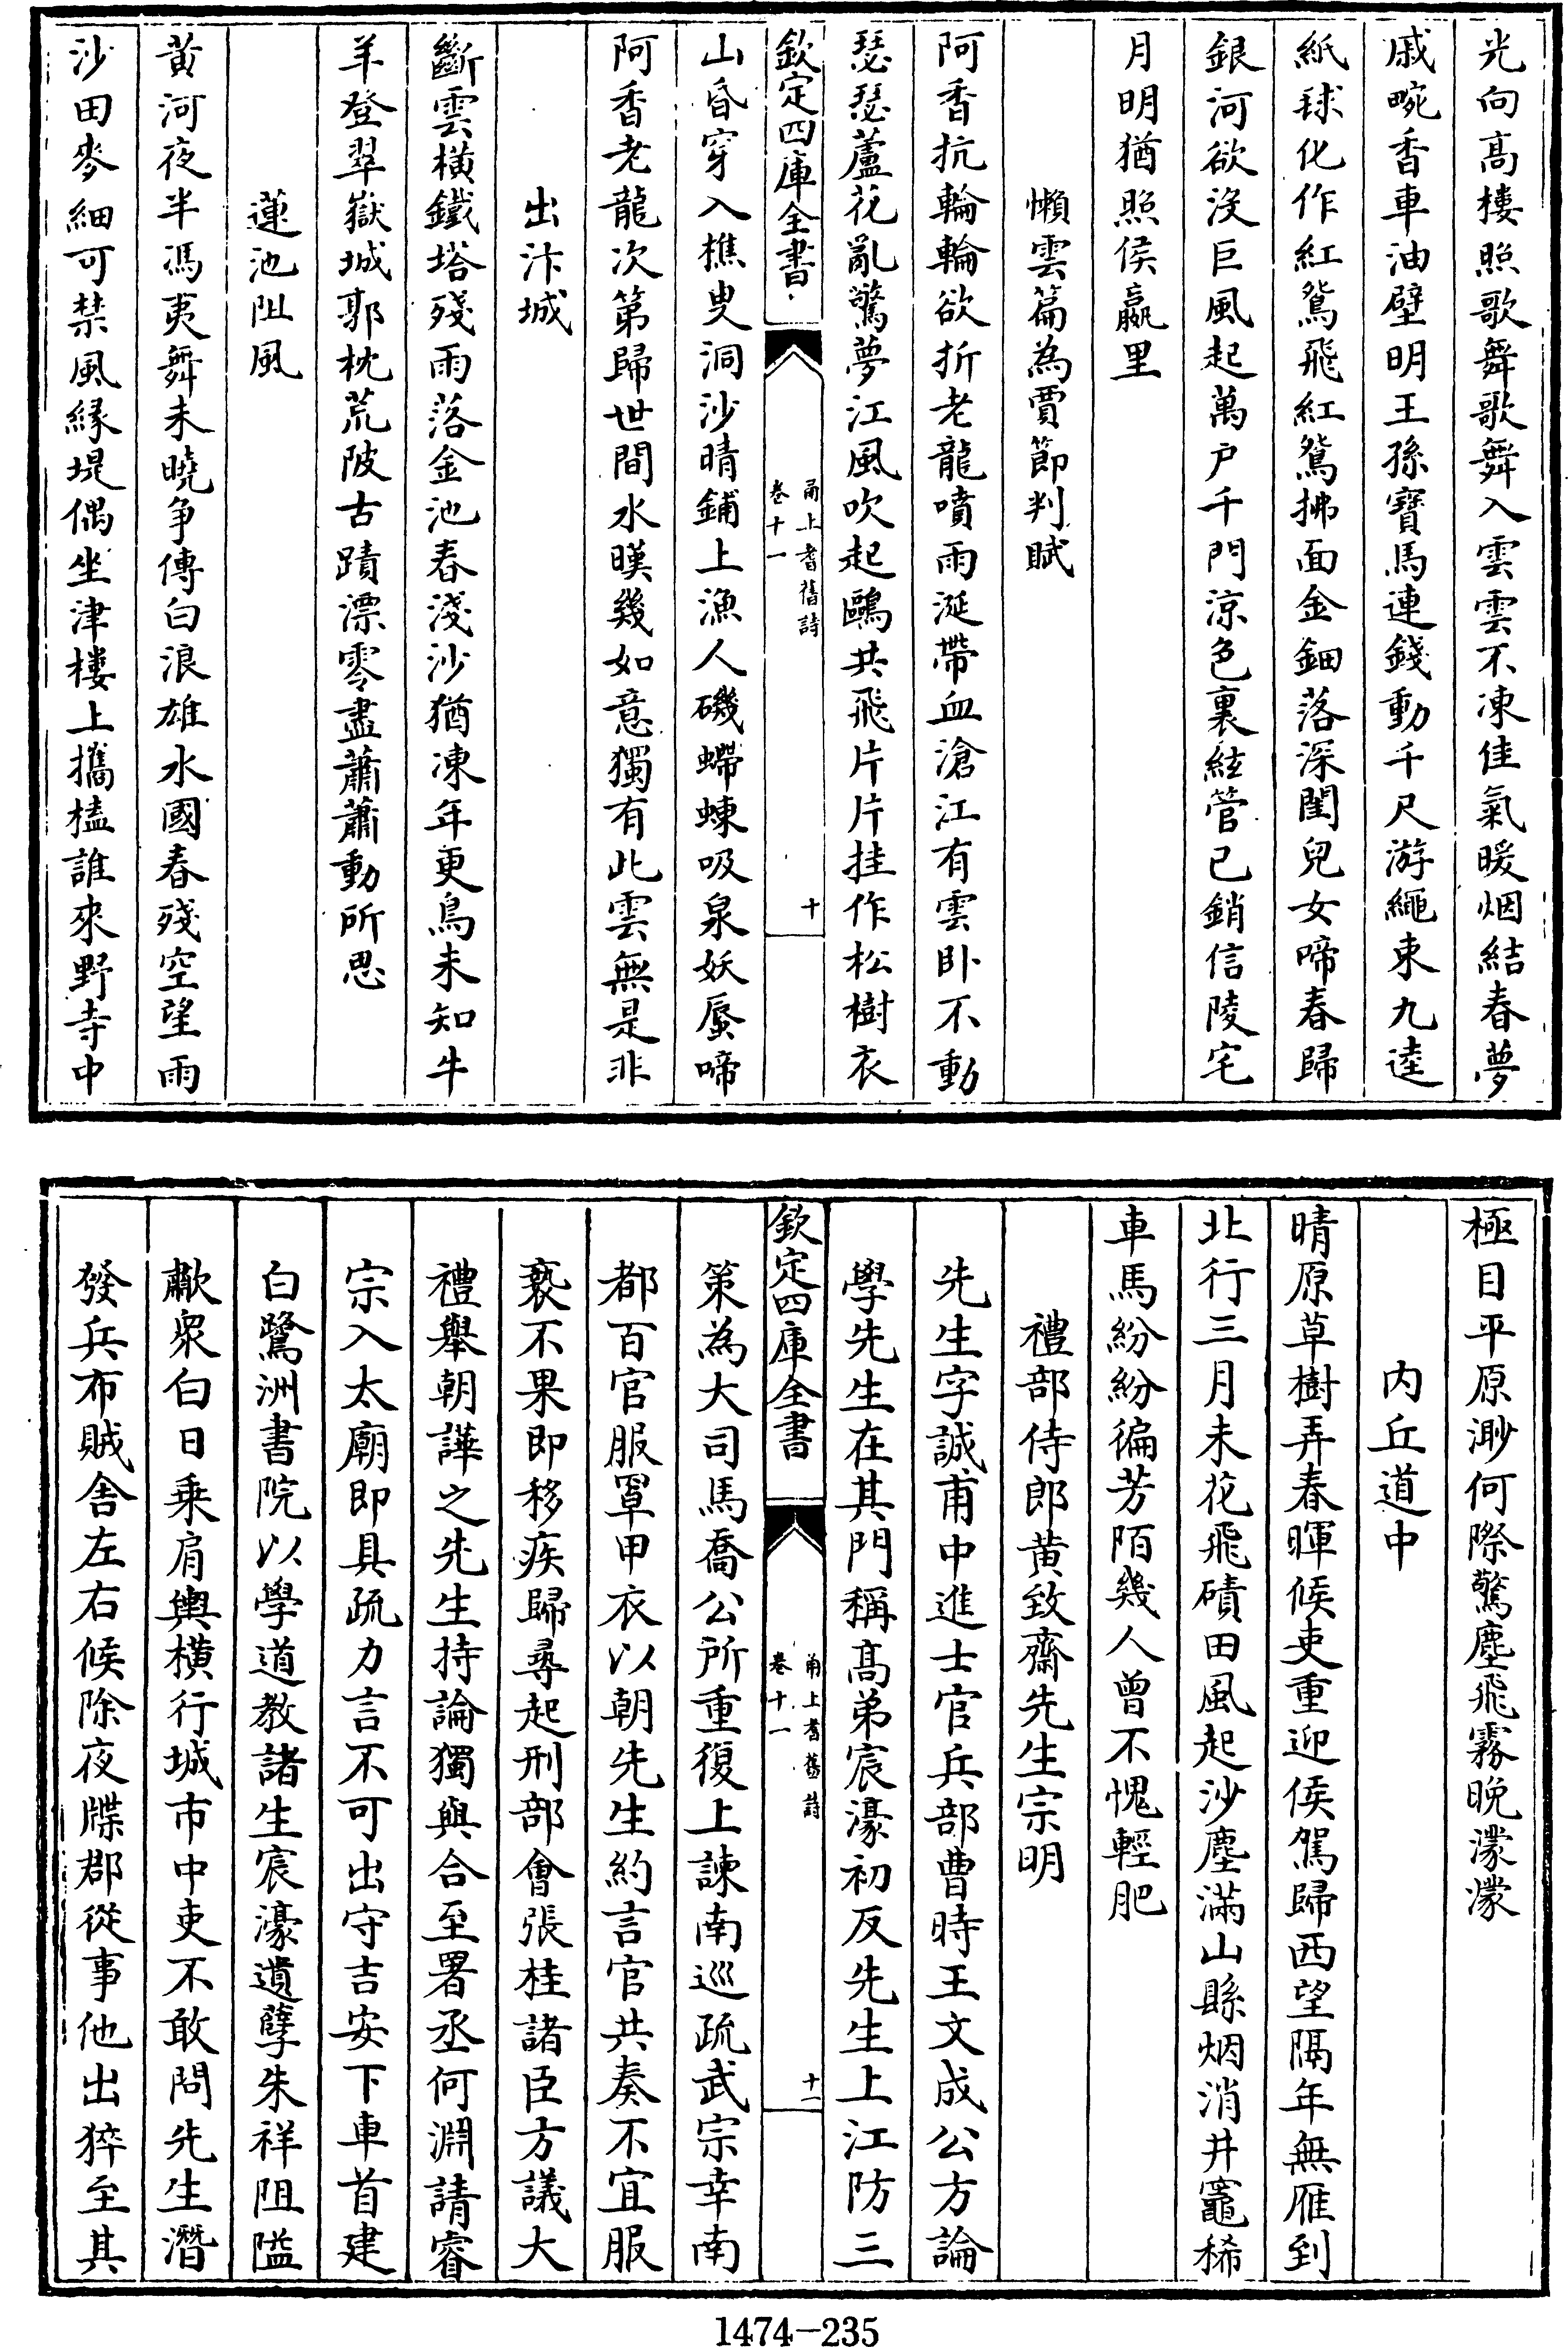 光向髙樓照歌舞歌舞入雲雲不凍佳氣暖烟結春夢
戚畹香車油壁明王孫寶馬連錢動千尺游繩束九逵
紙毬化作紅鴛飛紅鴛拂面金鈿落深閨兒女啼春歸
銀河欲沒巨風起萬户千門涼色裏絃管已銷信陵宅
月明猶照侯嬴里
懶雲篇為賈節判賦
阿香抗輪輪欲折老龍噴雨涎帶血滄江有雲卧不動
瑟瑟蘆花亂驚夢江風吹起鷗共飛片片挂作松樹衣
欽定四庫全書
甬上耆舊詩
卷十一
十
山昏穿入樵叟洞沙晴鋪上漁人磯螮蝀吸泉妖蜃啼
阿香老龍次第歸世間水暵幾如意獨有此雲無是非
出汴城
斷雲橫鐵塔殘雨落金池春淺沙猶凍年更鳥未知牛
羊登翠嶽城郭枕荒陂古蹟漂零盡蕭蕭動所思
蓮池阻風
黃河夜半馮夷舞未曉争傳白浪雄水國春殘空望雨
沙田麥細可禁風緣堤偶坐津樓上攜榼誰來野寺中
極目平原渺何際驚塵飛霧晚濛濛
内丘道中
晴原草樹弄春暉候吏重迎侯駕歸西望隔年無雁到
北行三月未花飛磧田風起沙塵滿山縣烟消井竈稀
車馬紛紛徧芳陌幾人曾不愧輕肥
禮部侍郎黄致齋先生宗明
先生字誠甫中進士官兵部曹時王文成公方論
學先生在其門稱髙弟宸濠初反先生上江防三
欽定四庫全書
甬上耆舊詩
卷十一
十一
策為大司馬喬公所重復上諫南巡疏武宗幸南
都百官服罩甲衣以朝先生約言官共奏不宜服
褻不果即移疾歸尋起刑部會張桂諸臣方議大
禮舉朝譁之先生持論獨與合至署丞何淵請睿
宗入太廟即具疏力言不可出守吉安下車首建
白鷺洲書院以學道教諸生宸濠遺孽朱祥阻隘
歗衆白日乗肩輿橫行城市中吏不敢問先生潛
發兵布賊舎左右候除夜牒郡從事他出猝至其
1474—235